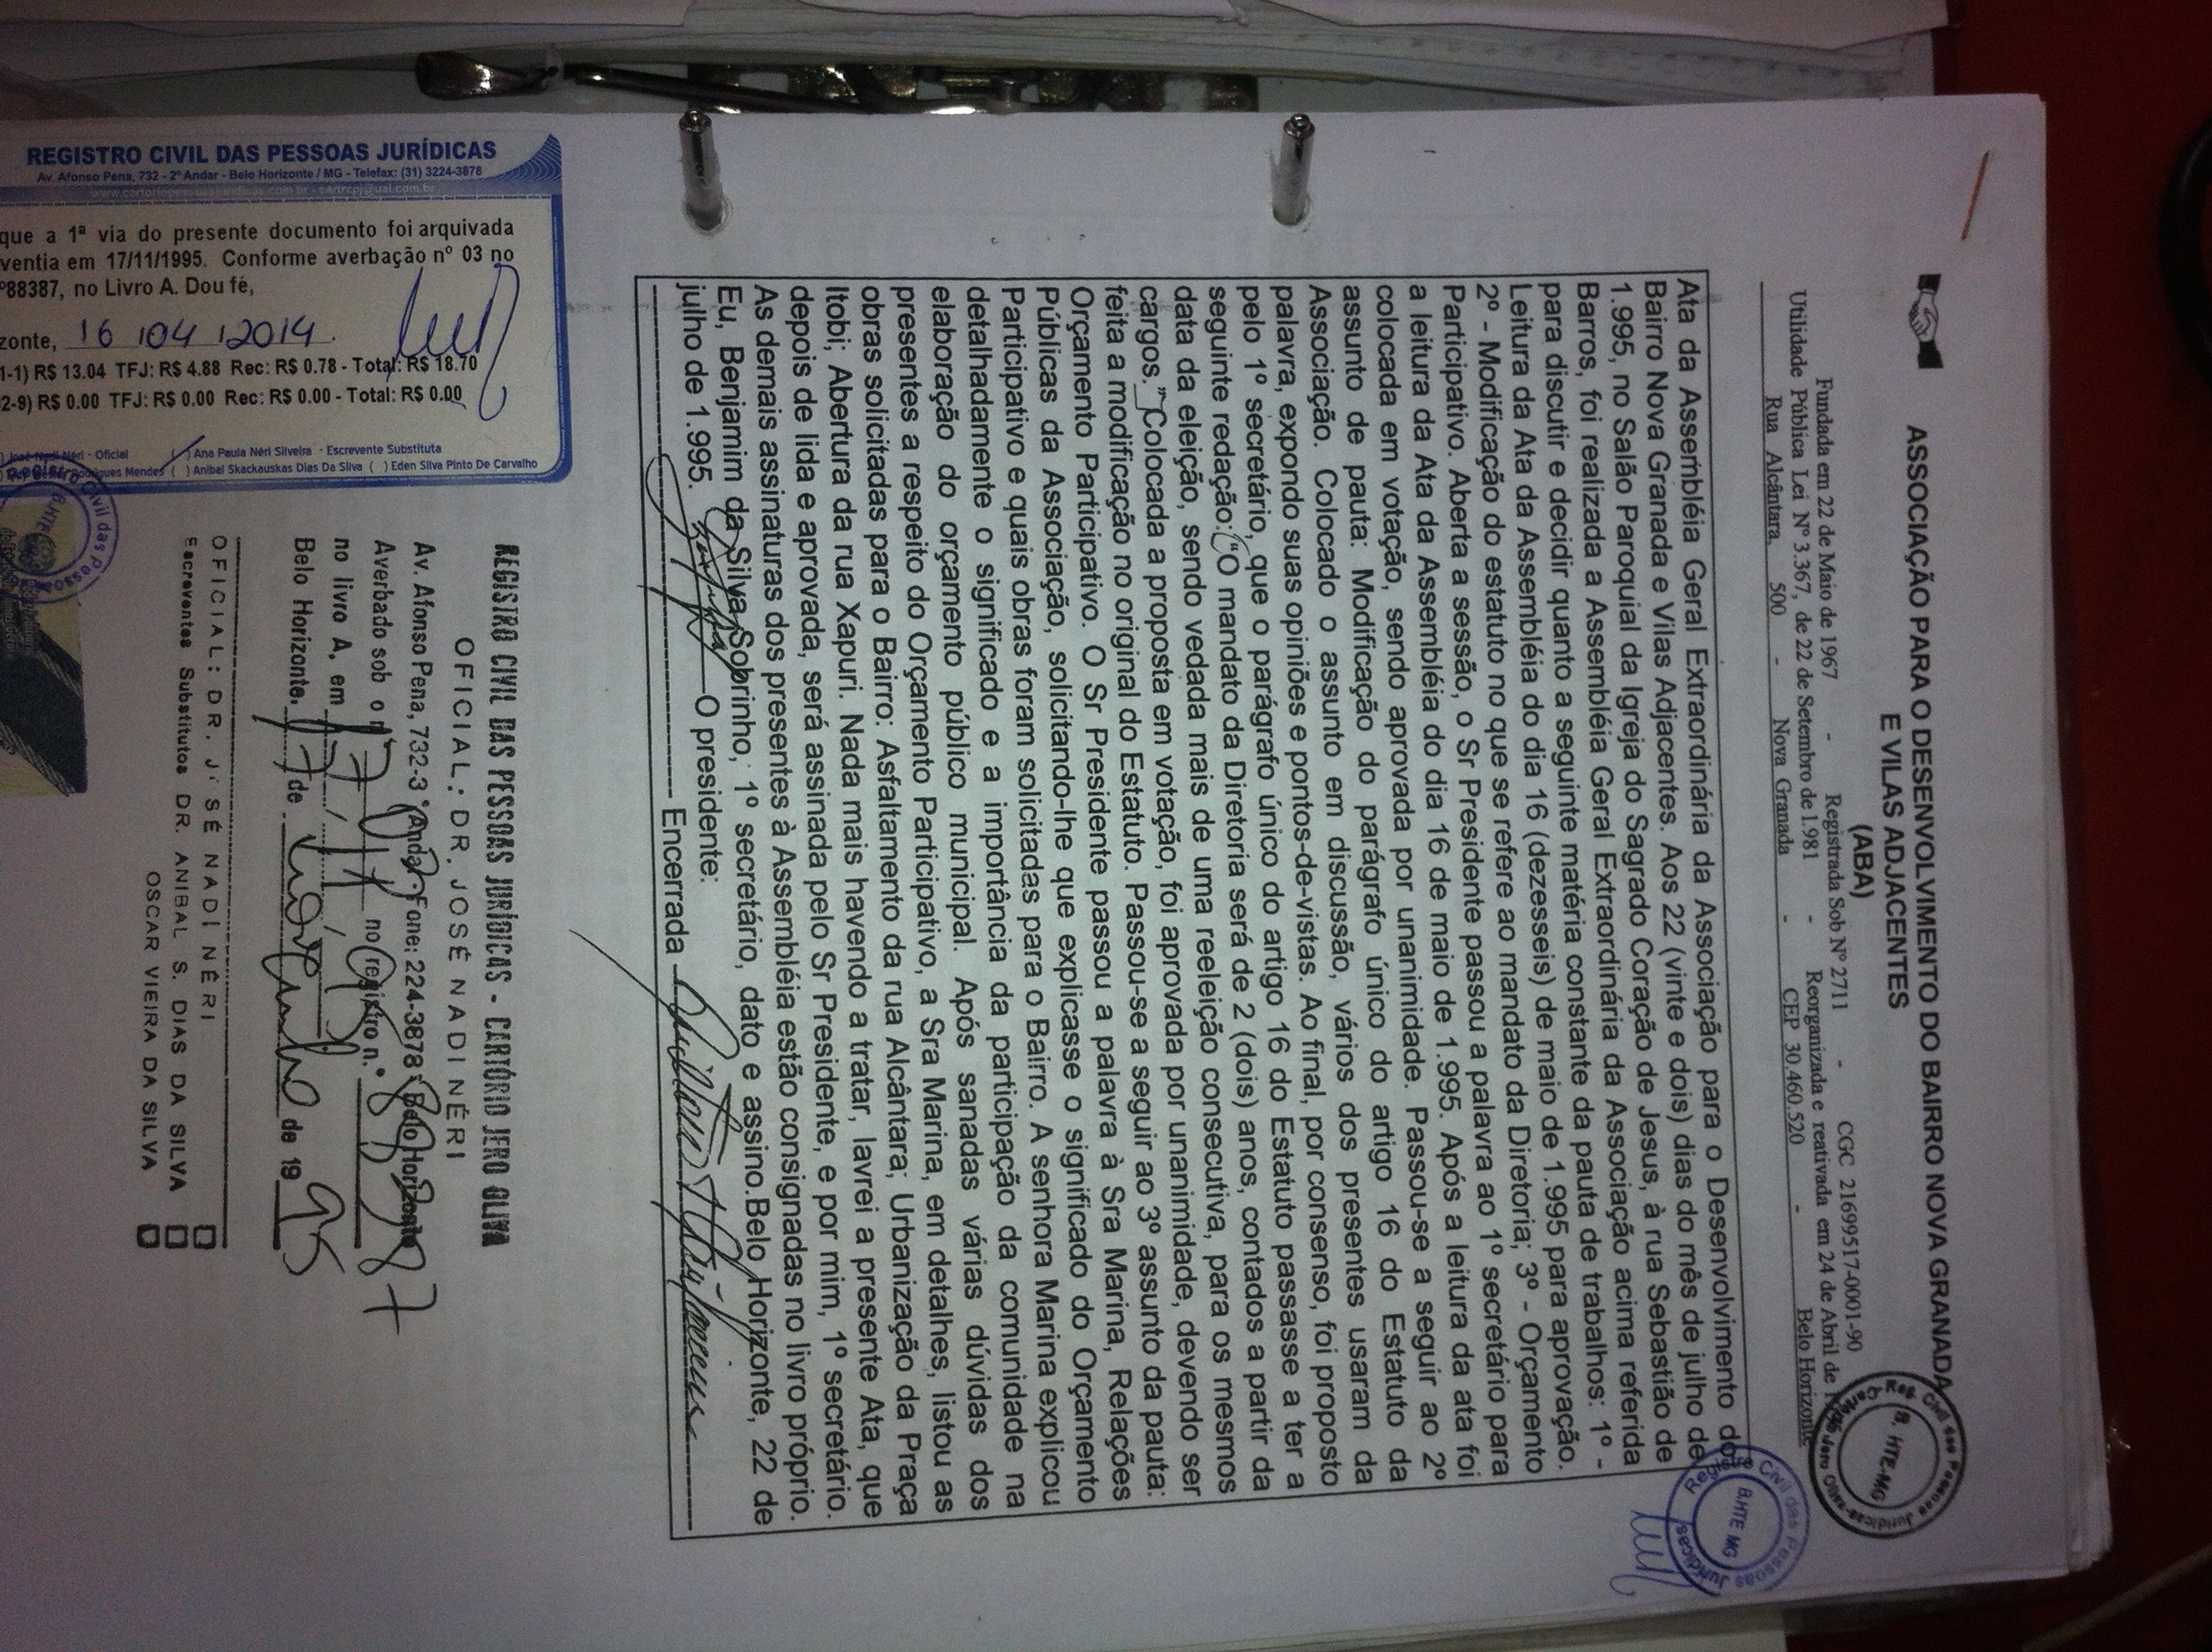 ASSOCIAÇÃO PARA O DESENVOLVIMENTO DO BAIRRO NOVA GRANADA
E VILAS ADJACENTES
(ABA)
Fundada em 22 de Maio de 1967 - Registrada Sob Nº 2711 - CGC 21699517-0001-90
Utilidade Pública Lei Nº 3.367, de 22 de Setembro de 1.981 - Reorganizada e reativada em 24 de Abril de
Rua Alcântara, 500 - Nova Granada - CEP 30.460.520 - Belo Horizonte
Ata da Assembléia Geral Extraordinária da Associação para o Desenvolvimento do
Bairro Nova Granada e Vilas Adjacentes. Aos 22 (vinte e dois) dias do mês de julho de
1.995, no Salão Paroquial da Igreja do Sagrado Coração de Jesus, à rua Sebastião de
Barros, foi realizada a Assembléia Geral Extraordinária da Associação acima referida
para discutir e decidir quanto a seguinte matéria constante da pauta de trabalhos: 1º -
Leitura da Ata da Assembléia do dia 16 (dezesseis) de maio de 1.995 para aprovação.
2º - Modificação do estatuto no que se refere ao mandato da Diretoria; 3º - Orçamento
Participativo. Aberta a sessão, o Sr Presidente passou a palavra ao 1º secretário para
a leitura da Ata da Assembléia do dia 16 de maio de 1.995. Após a leitura da ata foi
colocada em votação, sendo aprovada por unanimidade. Passou-se a seguir ao 2º
assunto de pauta: Modificação do parágrafo único do artigo 16 do Estatuto da
Associação. Colocado o assunto em discussão, vários dos presentes usaram da
palavra, expondo suas opiniões e pontos-de-vistas. Ao final, por consenso, foi proposto
pelo 1º secretário, que o parágrafo único do artigo 16 do Estatuto passasse a ter a
seguinte redação: "O mandato da Diretoria será de 2 (dois) anos, contados a partir da
data da eleição, sendo vedada mais de uma reeleição consecutiva, para os mesmos
cargos." Colocada a proposta em votação, foi aprovada por unanimidade, devendo ser
feita a modificação no original do Estatuto. Passou-se a seguir ao 3º assunto da pauta:
Orçamento Participativo. O Sr Presidente passou a palavra à Sra Marina, Relações
Públicas da Associação, solicitando-lhe que explicasse o significado do Orçamento
Participativo e quais obras foram solicitadas para o Bairro. A senhora Marina explicou
detalhadamente o significado e a importância da participação da comunidade na
elaboração do orçamento público municipal. Após sanadas várias dúvidas dos
presentes a respeito do Orçamento Participativo, a Sra Marina, em detalhes, listou as
obras solicitadas para o Bairro: Asfaltamento da rua Alcântara; Urbanização da Praça
Itobi; Abertura da rua Xapuri. Nada mais havendo a tratar, lavrei a presente Ata, que
depois de lida e aprovada, será assinada pelo Sr Presidente, e por mim, 1º secretário.
As demais assinaturas dos presentes à Assembléia estão consignadas no livro próprio.
Eu, Benjamim da Silva Sobrinho, 1º secretário, dato e assino.Belo Horizonte, 22 de
julho de 1.995. O presidente:
Encerrada
REGISTRO CIVIL DAS PESSOAS JURÍDICAS - CARTÓRIO JERO OLIVA
OFICIAL: DR. JOSÉ NADI NÉRI
Av. Afonso Pena, 732-3º Andar - Fone: 224-3878 Belo Horizonte
Averbado sob o nº no registro n.º 88387
no livro A, em
Belo Horizonte, 17 de de 1995
OFICIAL: DR. JOSÉ NADI NÉRI
Escreventes Substitutos DR. ANIBAL S. DIAS DA SILVA
OSCAR VIEIRA DA SILVA
REGISTRO CIVIL DAS PESSOAS JURÍDICAS
Av. Afonso Pena, 732 - 2º Andar - Belo Horizonte / MG - Telefax: (31) 3224-3878
que a 1ª via do presente documento foi arquivada
ventia em 17/11/1995. Conforme averbação nº 03 no
º88387, no Livro A. Dou fé,
zonte, 16 / 04 / 2014.
1-1) R$ 13.04 TFJ: R$ 4.88 Rec: R$ 0.78 - Total: R$ 18.70
2-9) R$ 0.00 TFJ: R$ 0.00 Rec: R$ 0.00 - Total: R$ 0.00
José Nadi Néri - Oficial ( ) Ana Paula Néri Silveira - Escrevente Substituta
Mendes ( ) Anibal Skackauskas Dias Da Silva ( ) Eden Silva Pinto De Carvalho
Registro Civil das Pessoas Jurídicas
B.HTE MG
B. HTE-MG